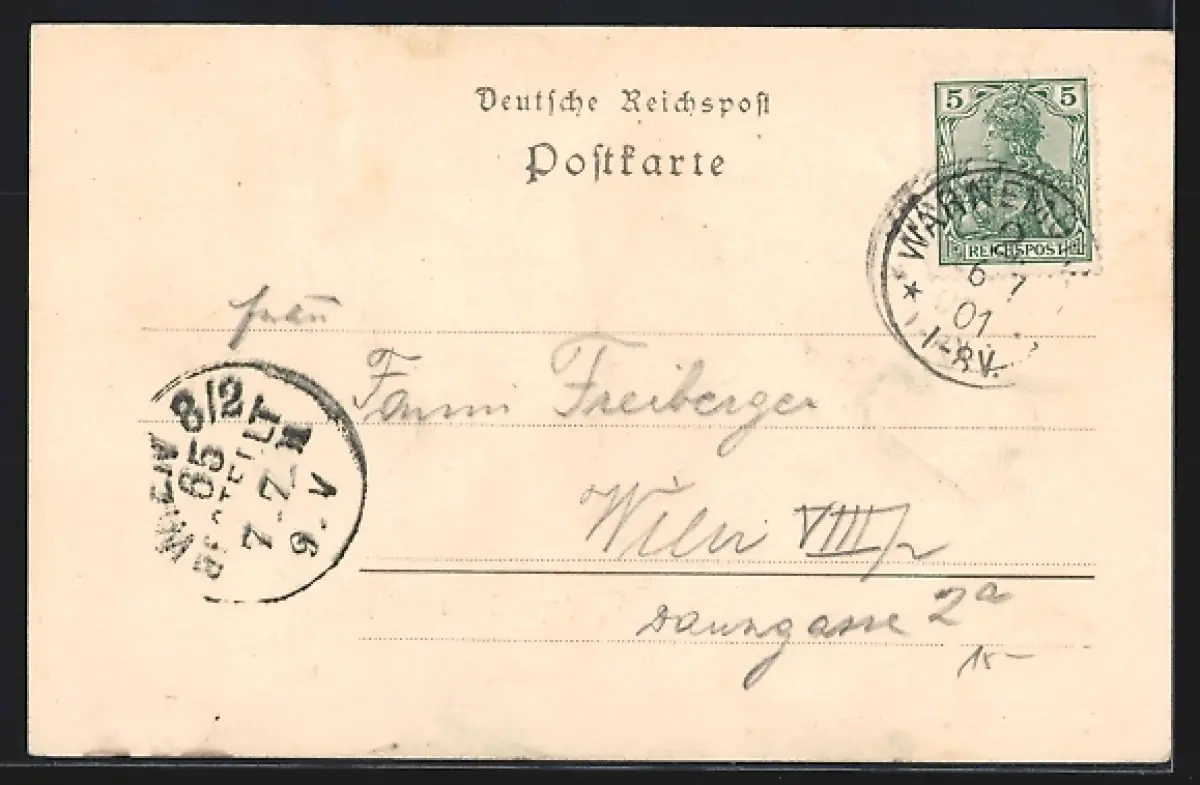 Deutsche Reichspost
Postkarte
5 5
REICHSPOST
* WARNEM
6 7
01
1-2 V.
Frau
Fanni Freiberger
Wien VIII/2
Daungasse 2a
15-
WIEN 8/2
65
BESTELLT
7. 7
9. V